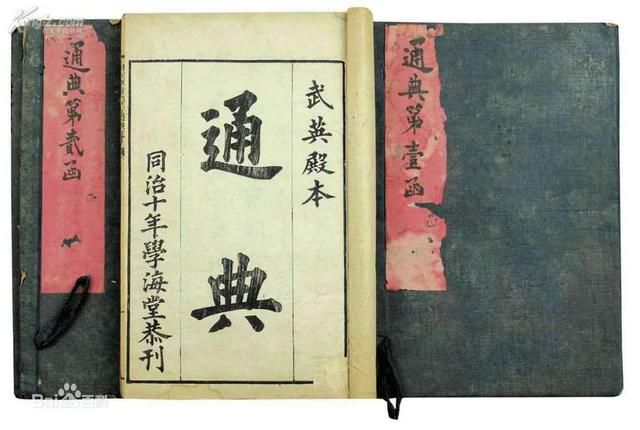 通典第壹函
武英殿本
通典
同治十年學海堂恭刊
通典第貳函
Kongfz.com
Bai百科